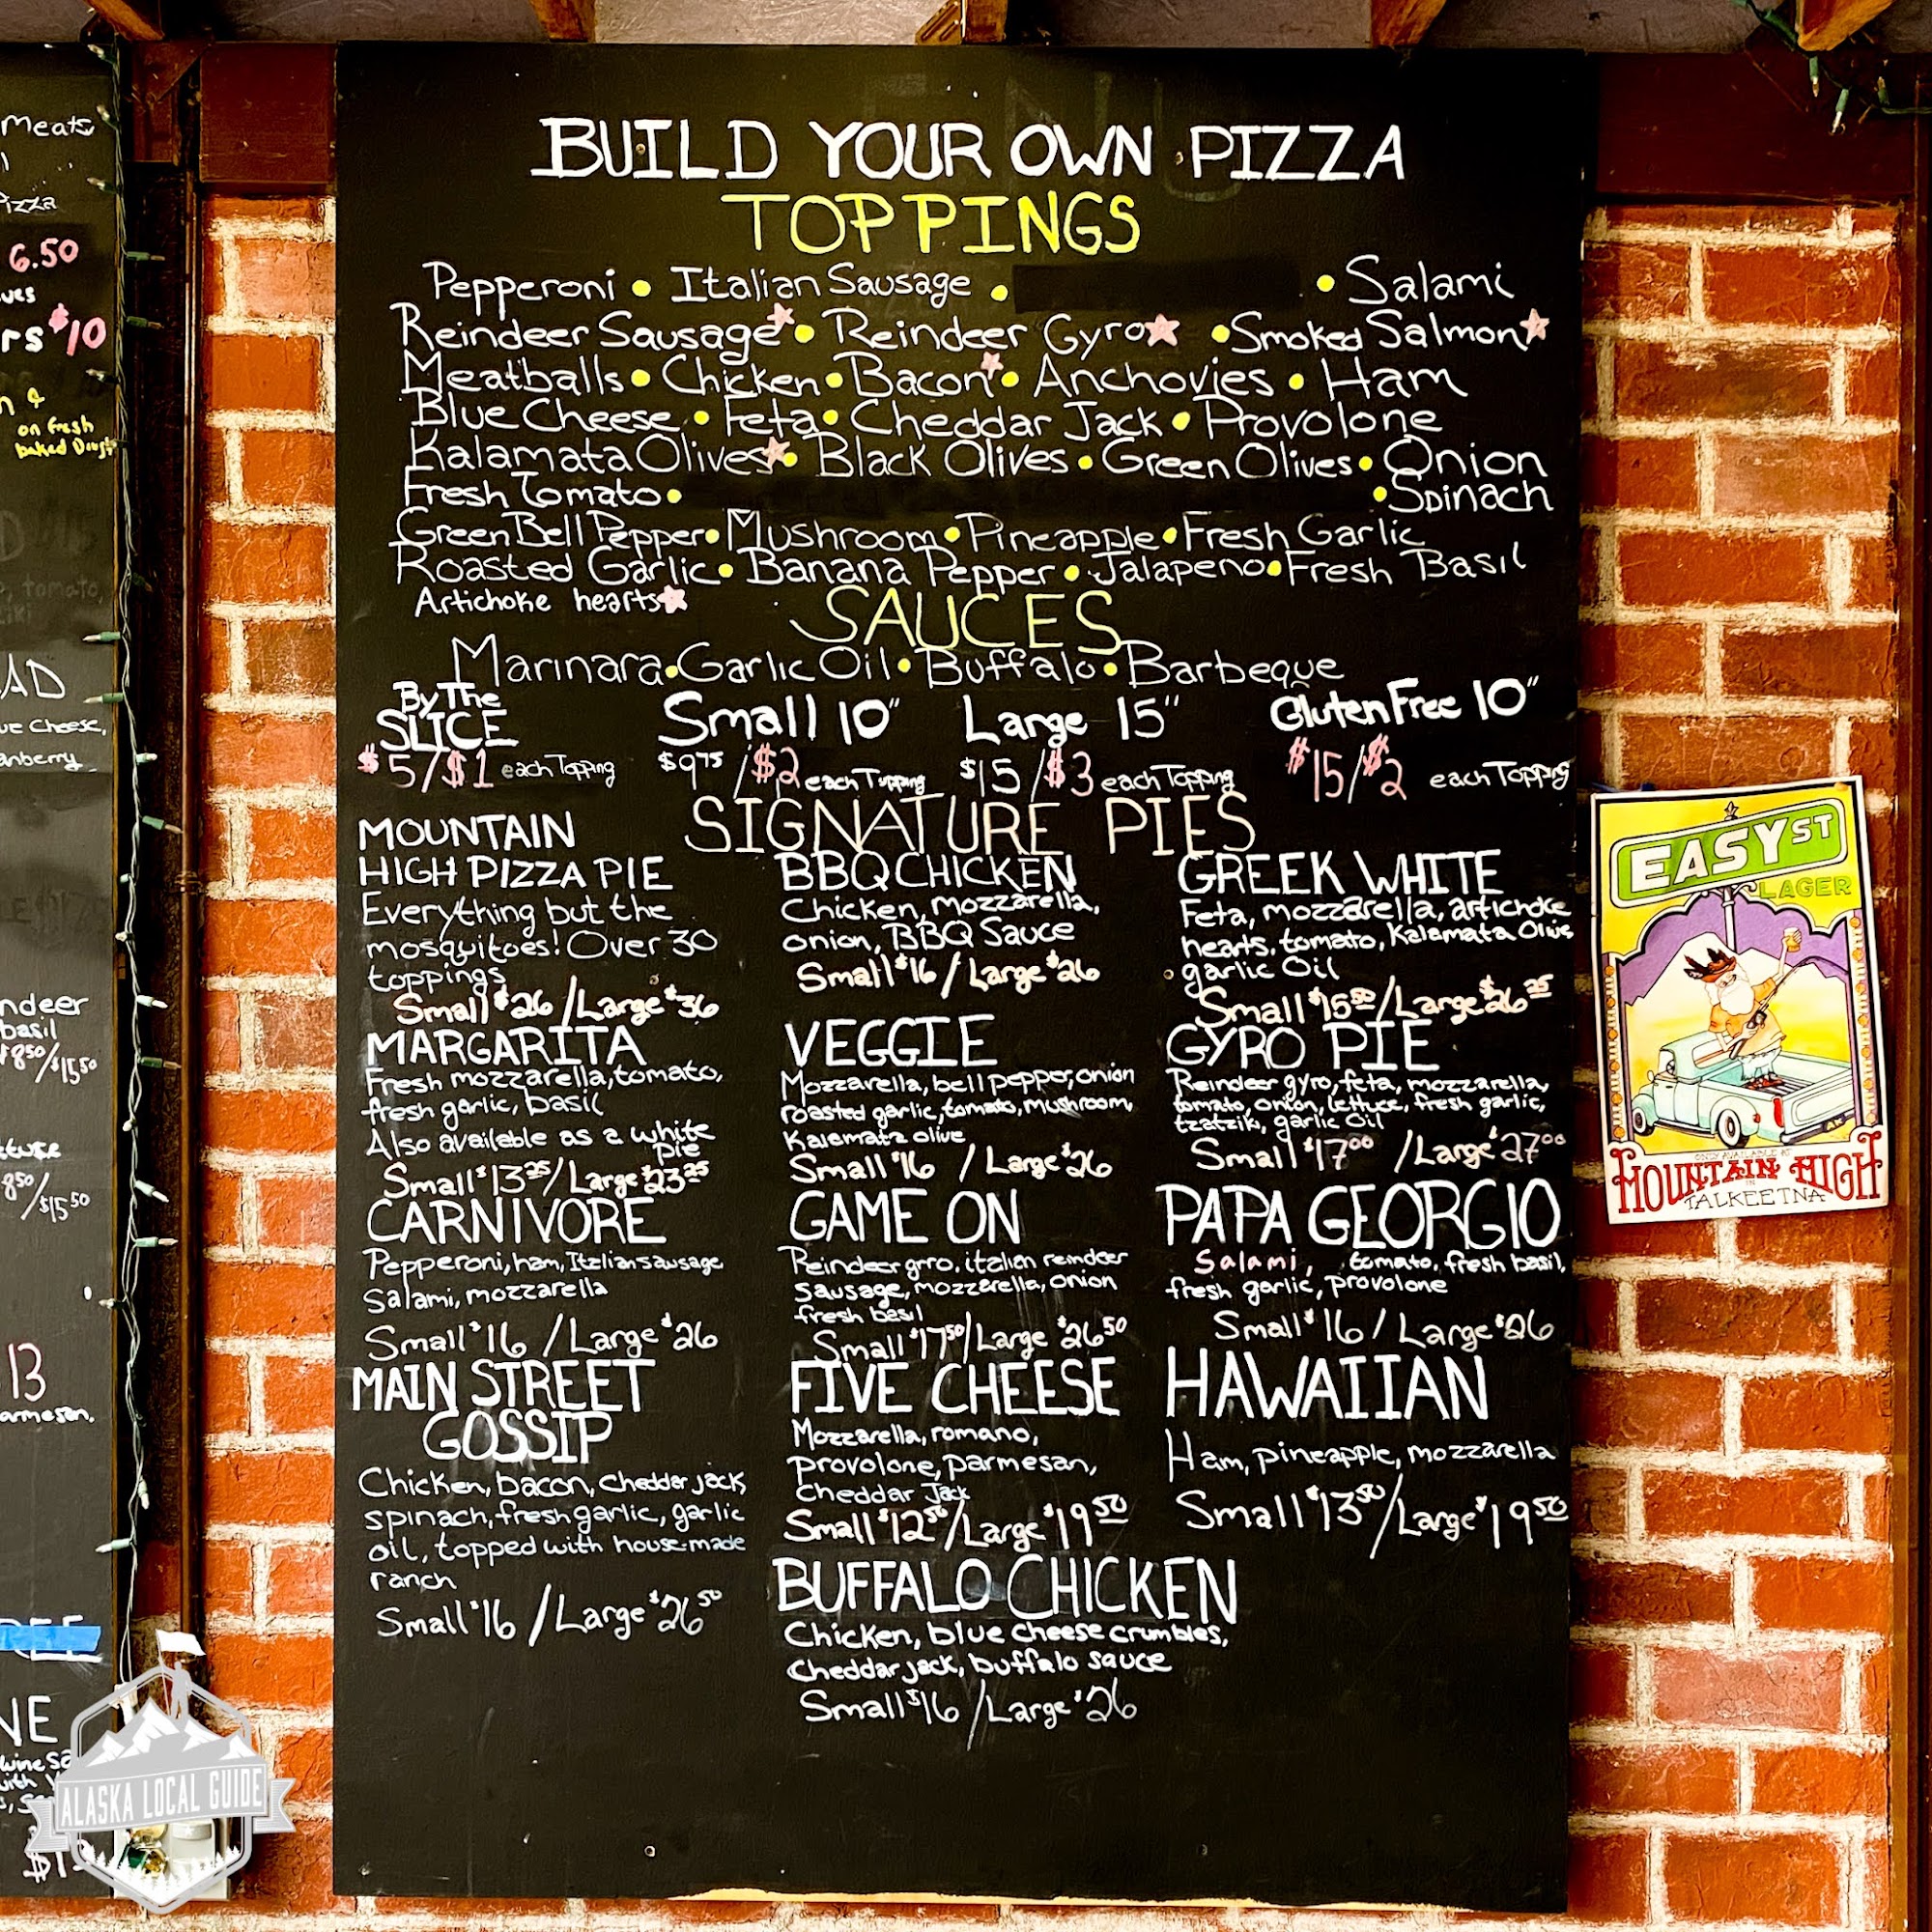 Meats
Pizza
6.50
$10
on fresh
baked Dough
BUILD YOUR OWN PIZZA
TOPPINGS
Pepperoni • Italian Sausage • • Salami
Reindeer Sausage • Reindeer Gyro • Smoked Salmon
Meatballs • Chicken • Bacon • Anchovies • Ham
Blue Cheese • Feta • Cheddar Jack • Provolone
Kalamata Olives • Black Olives • Green Olives • Onion
Fresh Tomato • • Spinach
Green Bell Pepper • Mushroom • Pineapple • Fresh Garlic
Roasted Garlic • Banana Pepper • Jalapeno • Fresh Basil
Artichoke hearts
SAUCES
Marinara • Garlic Oil • Buffalo • Barbeque
By The
SLICE
$5/$1 each Topping
Small 10"
$9.75/$2 each Topping
Large 15"
$15/$3 each Topping
Gluten Free 10"
$15/$2 each Topping
SIGNATURE PIES
MOUNTAIN
HIGH PIZZA PIE
Everything but the
mosquitoes! Over 30
toppings
Small $26 / Large $36
MARGARITA
Fresh mozzarella, tomato,
fresh garlic, basil
Also available as a white
pie
Small $13.25 / Large $23.25
CARNIVORE
Pepperoni, ham, Italian sausage
Salami, mozzarella
Small $16 / Large $26
MAIN STREET
GOSSIP
Chicken, bacon, cheddar jack,
spinach, fresh garlic, garlic
oil, topped with house-made
ranch
Small $16 / Large $26.50
BBQ CHICKEN
Chicken, mozzarella,
onion, BBQ Sauce
Small $16 / Large $26
VEGGIE
Mozzarella, bell pepper, onion
roasted garlic, tomato, mushroom,
Kalamata olive
Small $16 / Large $26
GAME ON
Reindeer gyro, italian reindeer
sausage, mozzarella, onion
fresh basil
Small $17.50 / Large $26.50
FIVE CHEESE
Mozzarella, romano,
provolone, parmesan,
cheddar Jack
Small $12.50 / Large $19.50
BUFFALO CHICKEN
Chicken, blue cheese crumbles,
cheddar jack, buffalo sauce
Small $16 / Large $26
GREEK WHITE
Feta, mozzarella, artichoke
hearts, tomato, Kalamata Olive
garlic Oil
Small $15.50 / Large $26.25
GYRO PIE
Reindeer gyro, feta, mozzarella,
tomato, onion, lettuce, fresh garlic,
tzatziki, garlic Oil
Small $17.00 / Large $27.00
PAPA GEORGIO
Salami, tomato, fresh basil,
fresh garlic, provolone
Small $16 / Large $26
HAWAIIAN
Ham, pineapple, mozzarella
Small $13.50 / Large $19.50
EASY ST
LAGER
ONLY AVAILABLE AT
MOUNTAIN HIGH
IN
TALKEETNA
ALASKA LOCAL GUIDE